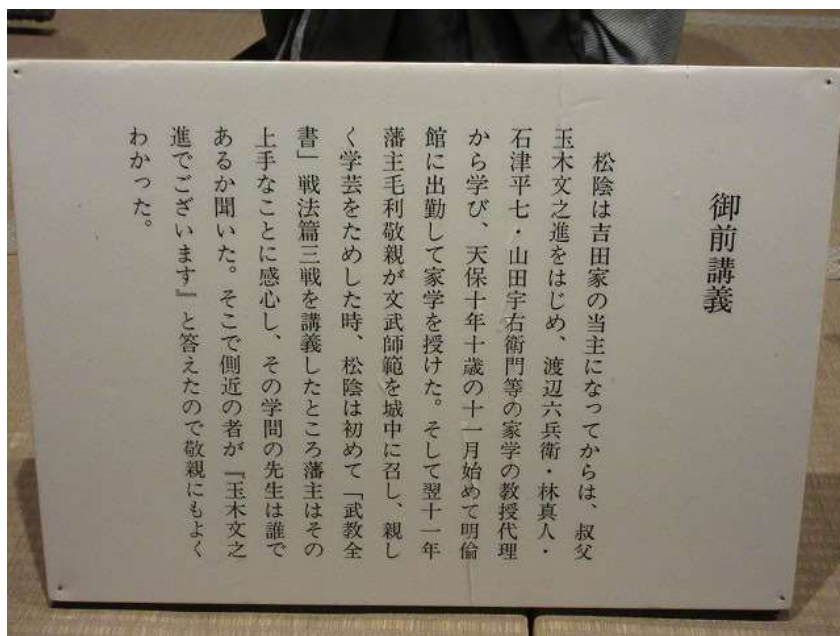 御前講義
松陰は吉田家の当主になってからは、叔父
玉木文之進をはじめ、渡辺六兵衛・林真人・
石津平七・山田宇右衛門等の家学の教授代理
から学び、天保十年十歳の十一月始めて明倫
館に出勤して家学を授けた。そして翌十一年
藩主毛利敬親が文武師範を城中に召し、親し
く学芸をためした時、松陰は初めて「武教全
書」戦法篇三戦を講義したところ藩主はその
上手なことに感心し、その学問の先生は誰で
あるか聞いた。そこで側近の者が『玉木文之
進でございます』と答えたので敬親にもよく
わかった。